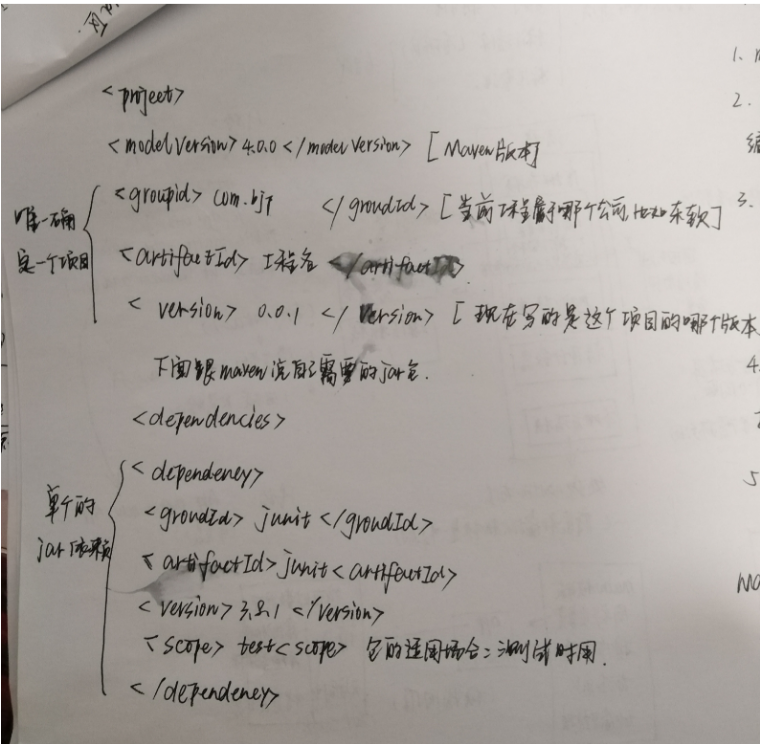 <project>
<modelVersion> 4.0.0 </model Version> [Maven版本]
<groupid> com.bjp </groudId> [当前工程属于哪个公司,比如东软]
唯一确
定一个项目
<artifactId> 工程名 </artifactId>
<version> 0.0.1 </Version> [现在写的是这个项目的哪个版本
下面跟maven说自己需要的jar包.
<dependencies>
单个的
jar依赖
<dependency>
<groudId> junit </groudId>
<artifactId> junit <artifactId>
<version> 3.8.1 </version>
<scope> test <scope> 包的适用场合:测试时用.
</dependency>
1.
2.
3.
4.
5